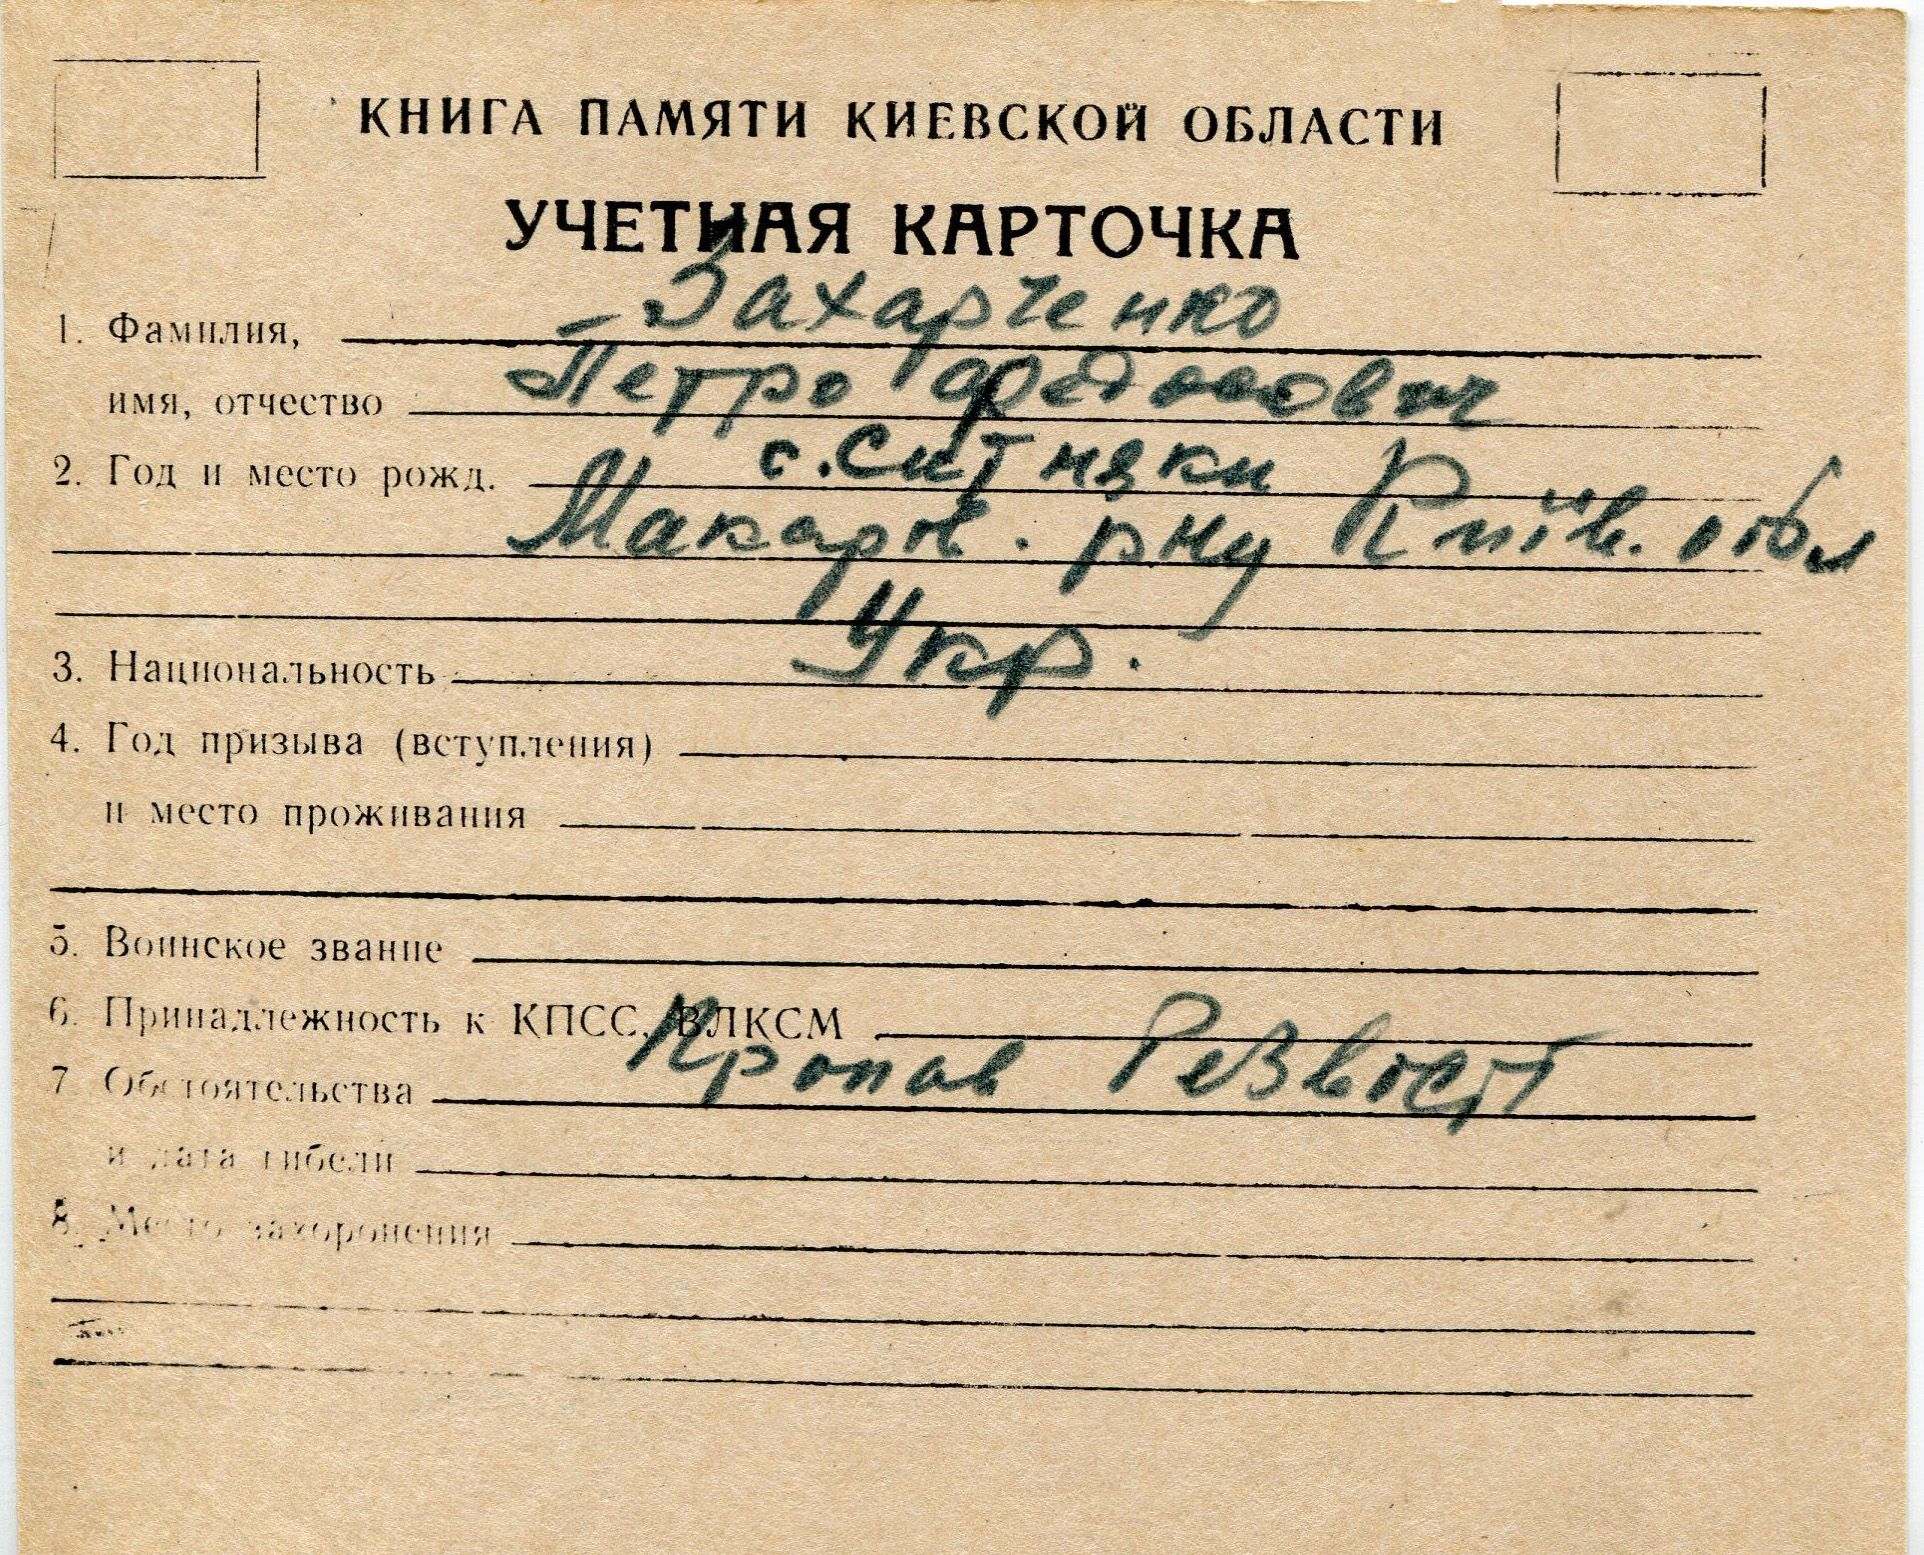 КНИГА ПАМЯТИ КИЕВСКОЙ ОБЛАСТИ
УЧЕТНАЯ КАРТОЧКА
1. Фамилия, Захарченко
имя, отчество Петро Федосович
2. Год и место рожд. с. Ситняки
Макарів. рну Київ. обл
Укр.
3. Национальность
4. Год призыва (вступления)
и место проживания
5. Воинское звание
6. Принадлежность к КПСС, ВЛКСМ
7 Обстоятельства Пропав Безвіст
и дата гибели
8. Место захоронения